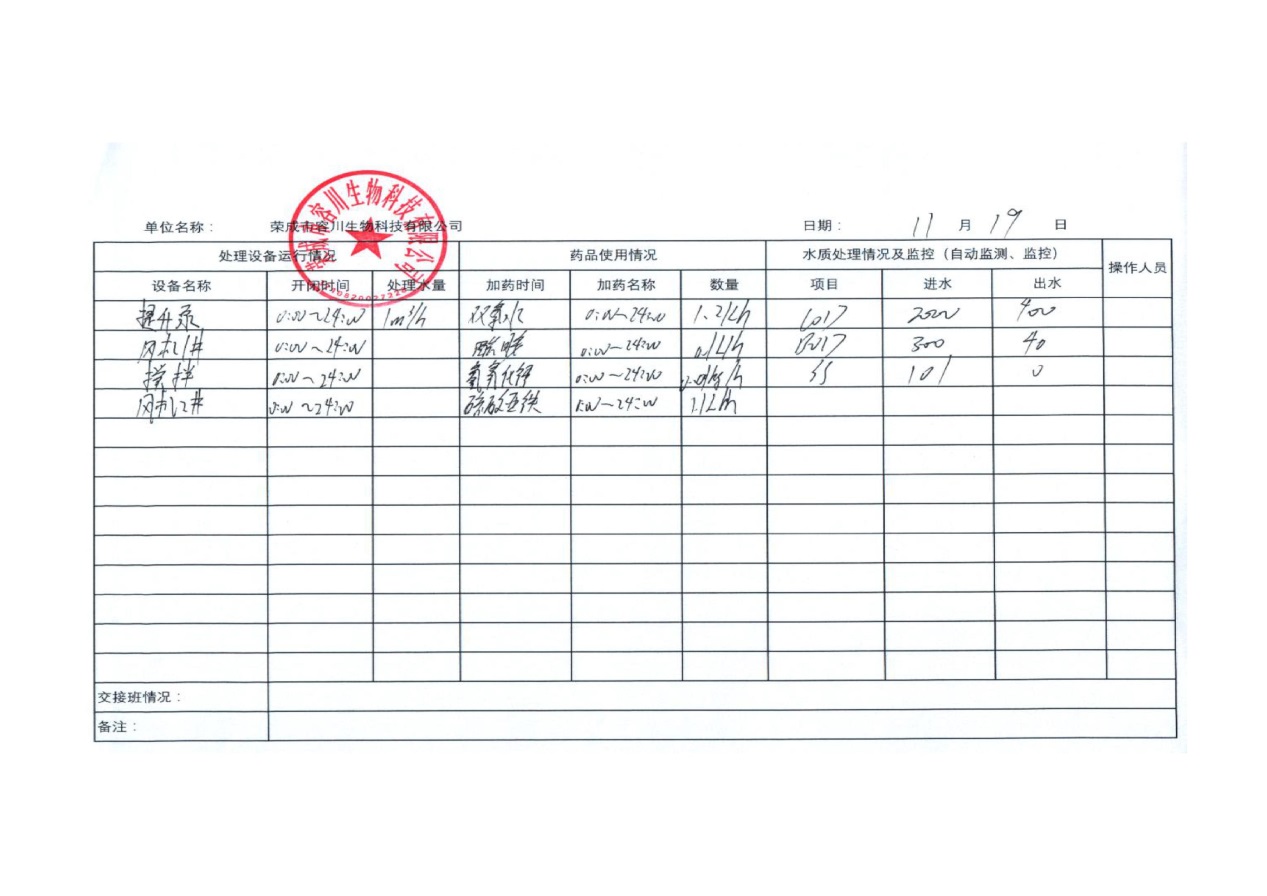 荣成市容川生物科技有限公司
单位名称： 荣成市容川生物科技有限公司 日期： 11 月 19 日
处理设备运行情况 药品使用情况 水质处理情况及监控（自动监测、监控） 操作人员
设备名称 开闭时间 处理水量 加药时间 加药名称 数量 项目 进水 出水
提升泵 0:00～24:00 1m³/h 双氧水 0:00～24:00 1.2L/h COD 2000 400
风机1# 0:00～24:00 0:00～24:00 BOD 300 40
搅拌 0:00～24:00 0:00～24:00 SS 101 0
风机2# 0:00～24:00 硫酸亚铁 0:00～24:00 1.1L/h
交接班情况：
备注：